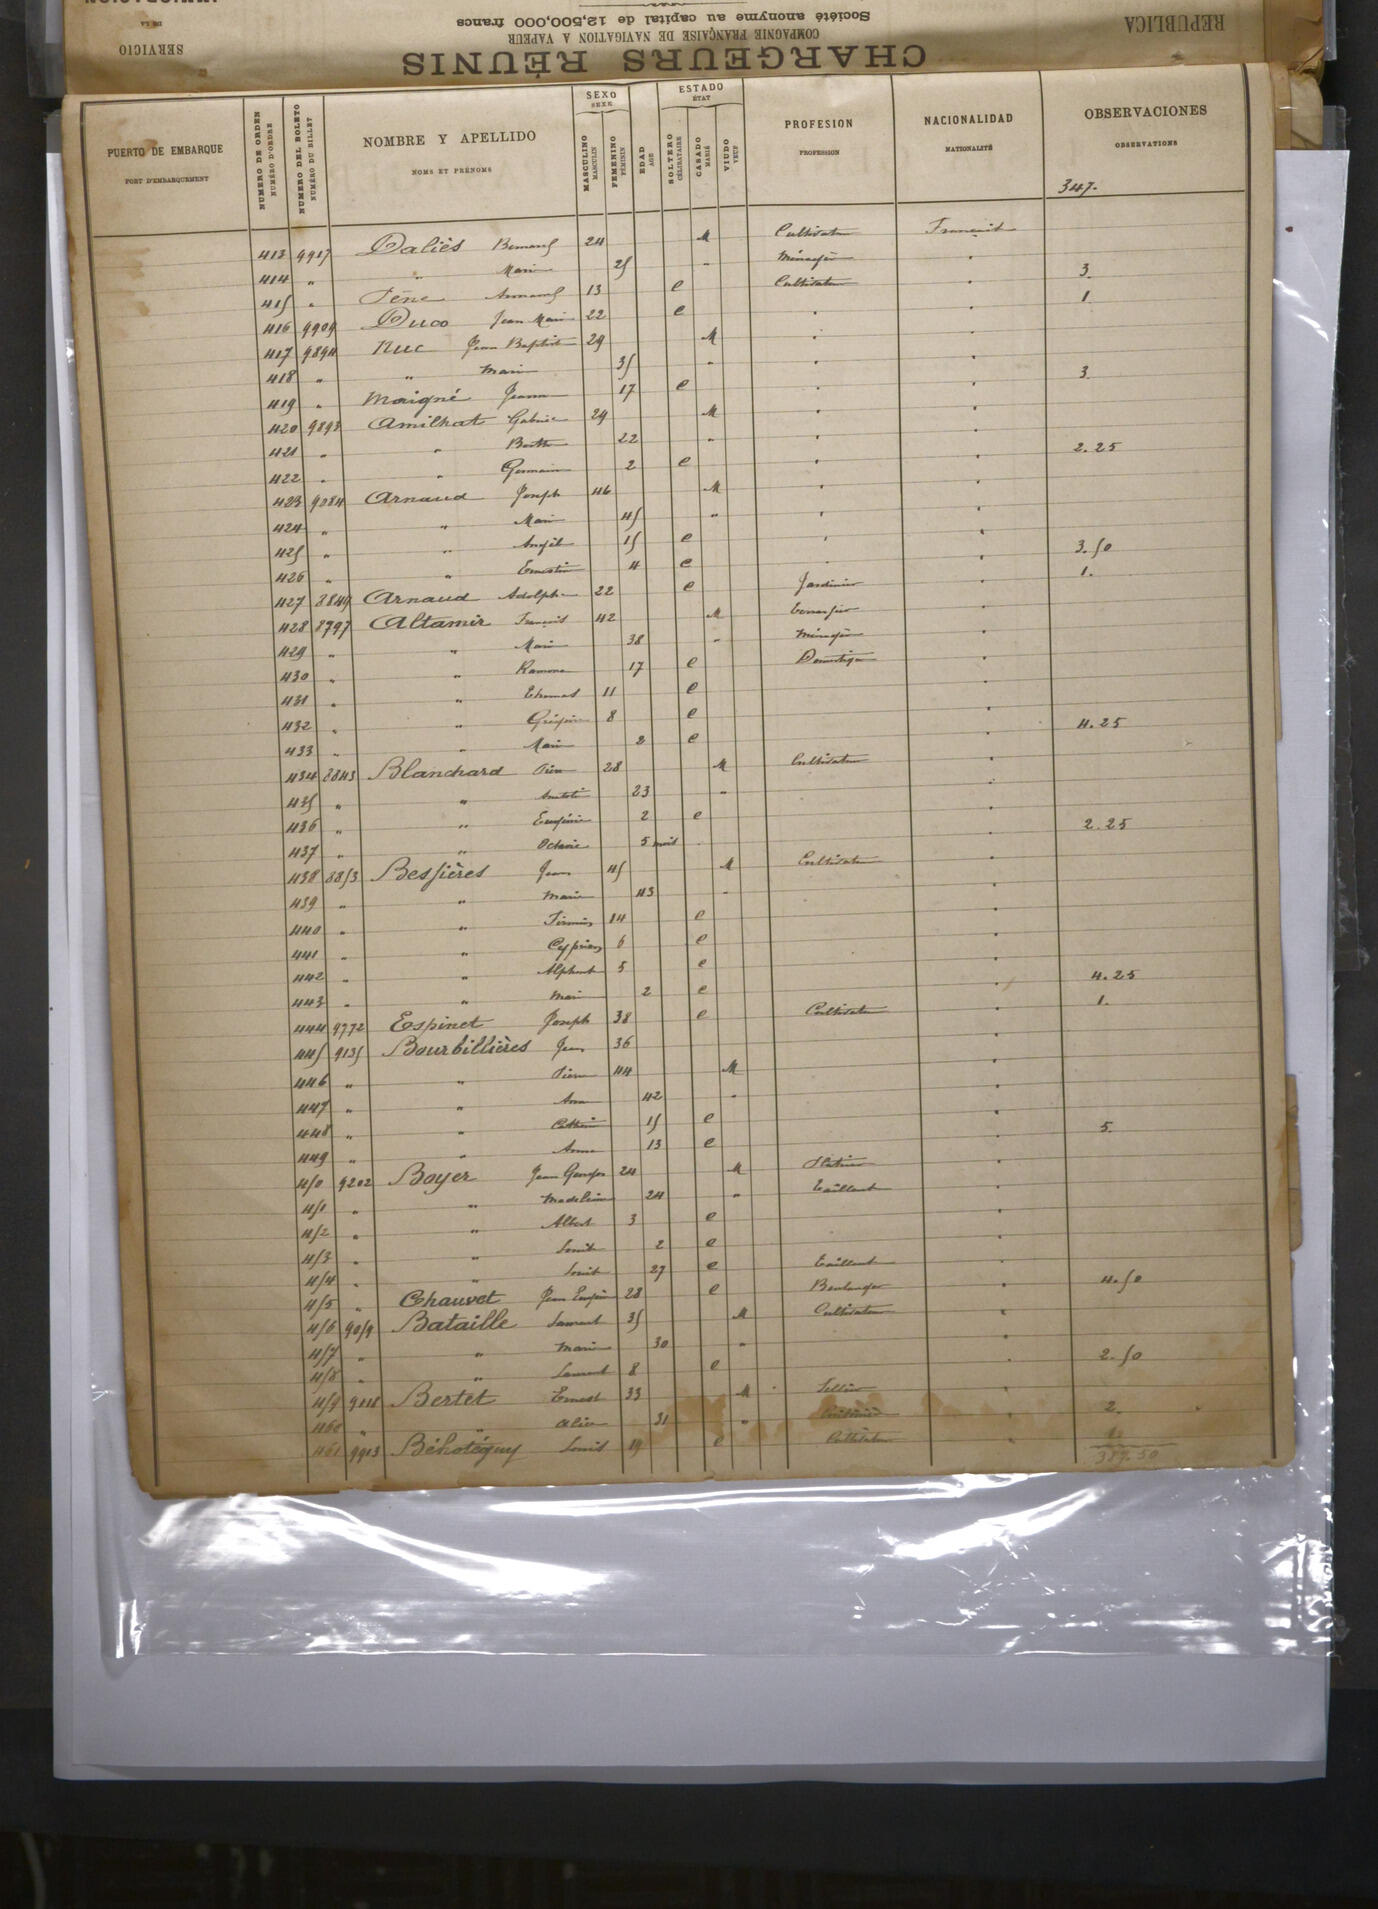 SERVICIO
DE LA
REPUBLICA
CHARGEURS RÉUNIS
COMPAGNIE FRANÇAISE DE NAVIGATION A VAPEUR
Société anonyme au capital de 12,500,000 francs
PUERTO DE EMBARQUE NUMERO DE ORDEN NUMERO DEL BOLETO NOMBRE Y APELLIDO SEXO MASCULINO FEMENINO EDAD ESTADO SOLTERO CASADO VIUDO PROFESION NACIONALIDAD OBSERVACIONES
PORT D'EMBARQUEMENT NUMÉRO D'ORDRE NUMÉRO DU BILLET NOMS ET PRÉNOMS SEXE MASCULIN FÉMININ AGE ÉTAT CÉLIBATAIRE MARIÉ VEUF PROFESSION NATIONALITÉ OBSERVATIONS
347.
413 9917 Daliès Bernard 24 M Cultivateur Français
414 " " Marie 25 " Ménagère "
415 " Armand 13 e Cultivateur " 3
416 9909 Duco Jean Marie 22 e " " 1
417 9894 Ruc Jean Baptiste 29 M " "
418 " " Marie 35 " " "
419 " Maigné Jeanne 17 e " " 3
420 9893 Amilhat Gabriel 29 M " "
421 " " Berthe 22 " " "
422 " " Germain 2 e " " 2.25
423 9084 Arnaud Joseph 46 M " "
424 " " Marie 45 " " "
425 " " Angèle 15 e " "
426 " " Ernestine 4 e " " 3.50
427 8849 Arnaud Adolphe 22 e Jardinier " 1.
428 8797 Altamir François 42 M terrassier "
429 " " Marie 38 " Ménagère "
430 " " Ramona 17 e Domestique "
431 " " Thomas 11 e "
432 " " Grégoire 8 e "
433 " " Marie 2 e " 4.25
434 8843 Blanchard 28 M Cultivateur "
435 " " 23 " "
436 " " Eugénie 2 e "
437 " " Octavie 5 mois " 2.25
438 8853 Bessières Jean 45 M Cultivateur "
439 " " Marie 43 " "
440 " " Firmin 14 e "
441 " " Cyprien 6 e "
442 " " Alphonse 5 e "
443 " " Marie 2 e " 4.25
444 9772 Espinet Joseph 38 e Cultivateur " 1.
445 9135 Bourbillières Jean 36 "
446 " " Pierre 44 M "
447 " " Anna 42 " "
448 " " Catherine 15 e "
449 " " Anna 13 e " 5.
450 9202 Boyer Jean Georges 24 M "
451 " " Madeleine 24 " "
452 " " Albert 3 e "
453 " " 2 e "
454 " " 27 e "
455 " Chauvet Jean Eugène 28 e Boulanger " 4.50
456 9059 Bataille Laurent 35 M Cultivateur "
457 " " Marie 30 " "
458 " " Laurent 8 e " 2.50
459 9118 Bertet Ernest 33 M Sellier "
460 " " Alice 31 " " 2.
461 9913 Béhotéguy Louis 19 e Cultivateur " 1.
389.50